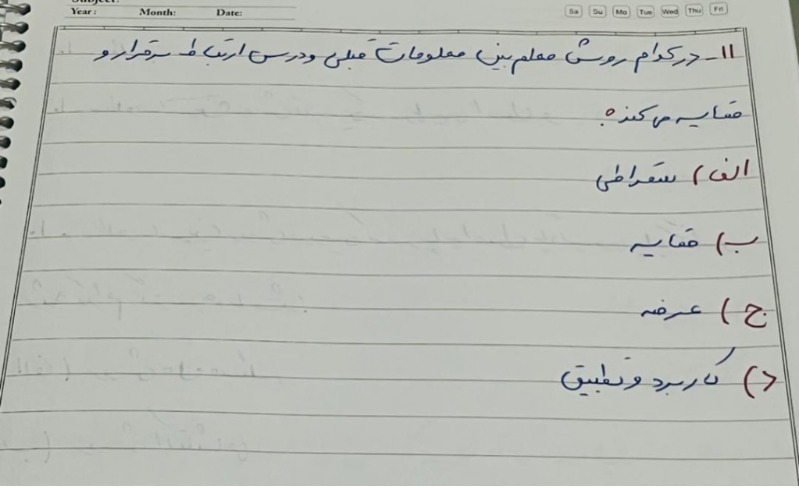 Subject:
Year : Month: Date: Sa Su Mo Tue Wed Thu Fri
۱۱- در کدام روش معلم بین معلومات قبلی و درس ارتباط برقرار و
مقایسه می کند؟
الف) سقراطی
ب) مقایسه
ج) عرضه
د) کاربرد و تطبیق